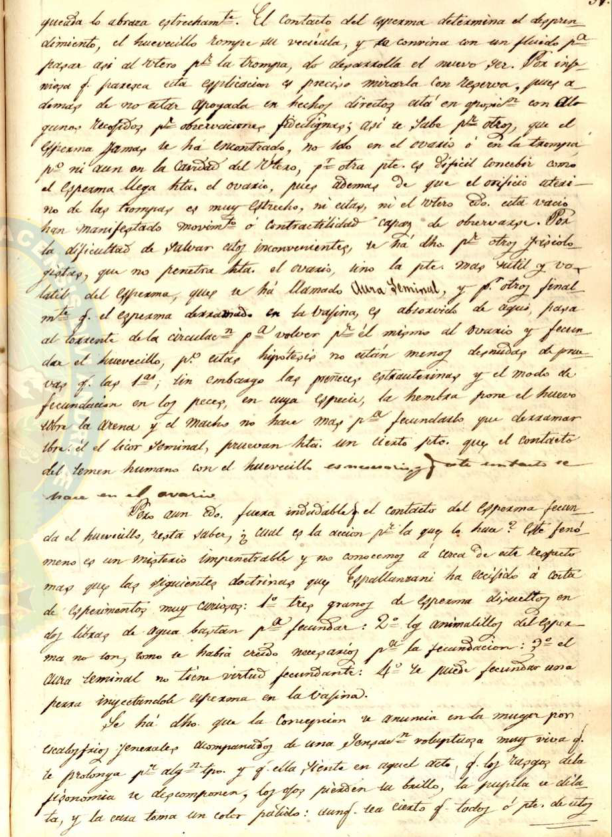 queada lo abraza estrechamte. El contacto del esperma determina el despren
dimiento, el huevecillo rompe su vecícula, y se convina con un fluido pa
pasar asi al Utero pr la trompa, do desarrolla el nuevo ser. Por inge
niosa q. paresca esta esplicacion es preciso mirarla con reserva, pues a
demas de no estar apoyada en hechos directos está en oposisn con Al
gunos recojidos pr observaciones fidedignas; asi se sabe pr otros, que el
esperma jamas se há encontrado, no solo en el ovario ó en la trompa
po ni aun en la cavidad del Utero, pr otra pte. es dificil concebir como
el esperma llega hta. el ovario, pues ademas de que el orificio uteri-
no de las trompas es muy estrecho, ni estas, ni el utero do. está vacio
han manifestado movimto ó contractilidad capaz de obervarse. Por
la dificultad de salvar estos inconvenientes, se há dho pr otros fisiolo
gistas, que no penetra hta. el ovario, sino la pte. mas sutil y vo-
latil, del esperma, que se há llamado Aura Seminal, y pr otros final
mte q. el esperma derramado en la vajina, es absorvido de aqui, pasa
al torrente de la circulacn pa volver pr el mismo al ovario y fecun
dar el huevecillo, po. estas hipotesis no están menos desnudas de prue
vas q. las 1as; sin embargo las preñeces estrauterinas y el modo de
fecundacion en los peces, en cuya especie, la hembra pone el huevo
sobre la arena y el macho no hace mas pa fecundarlo que derramar
sbre. él el licor seminal, pruevan hta. un cierto pto. que el contacto
del semen humano con el huevecillo es necesario y este contacto se
hace en el ovario.
Pero aun do. fuera indudable q. el contacto del esperma fecun
da el huevecillo, resta saber, ¿cual es la accion pr la que lo hace? Este fenó
meno es un misterio impenetrable y no conocemos á cerca de este respecto
mas que las siguientes doctrinas que Espallanzani ha recojido á costa
de esperimentos muy curiosos: 1o tres granos de esperma disueltos en
dos libras de agua bastan pa fecundar: 2o los animalillos del esper
ma no son, como se habia creido necesarios pa la fecundacion: 3o el
aura seminal no tiene virtud fecundante: 4o se puede fecundar una
perra inyectandole esperma en la vajina.
Se há dho. que la Concepcion se anuncia en la muger por
escalosfrios jenerales acompañados de una sensacn voluptuoza muy viva q.
se prolonga pr algn tpo. y q. ella siente en aquel acto, q. los rasgos dela
fizonomia se descomponen, los ojos pierden su brillo, la pupila se dila
ta, y la cara toma un color pálido: aunq. sea cierto q. todos ó pte. de estos